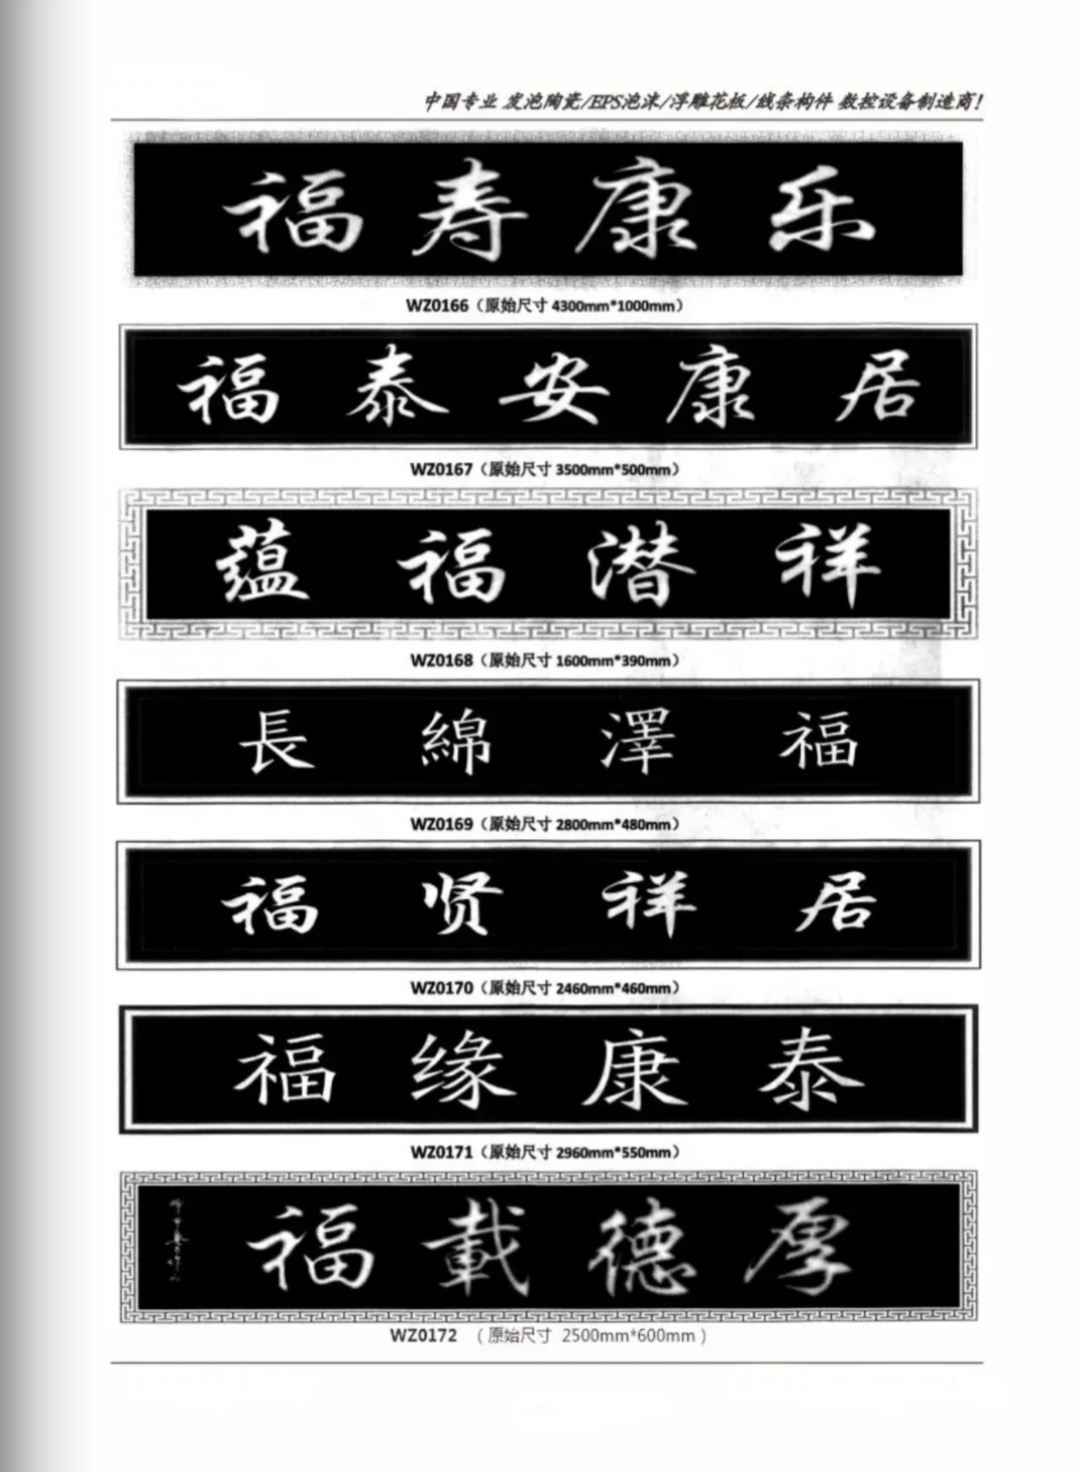 中国专业 发泡陶瓷/EPS泡沫/浮雕花板/线条构件 数控设备制造商！
福寿康乐
WZ0166（原始尺寸 4300mm*1000mm）
福泰安康居
WZ0167（原始尺寸 3500mm*500mm）
蕴福潜祥
WZ0168（原始尺寸 1600mm*390mm）
長綿澤福
WZ0169（原始尺寸 2800mm*480mm）
福贤祥居
WZ0170（原始尺寸 2460mm*460mm）
福缘康泰
WZ0171（原始尺寸 2960mm*550mm）
福載德厚
WZ0172 （原始尺寸 2500mm*600mm）